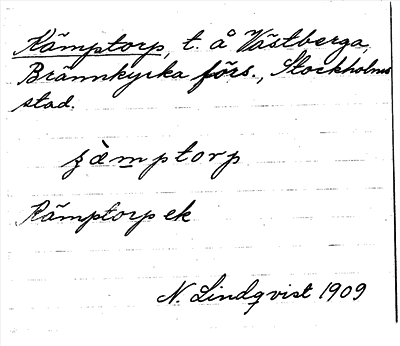 Kämptorp, t. å Västberga,
Brännkyrka förs., Stockholms
stad.
ʒàmptorp
Kämptorp ek
N. Lindqvist 1909